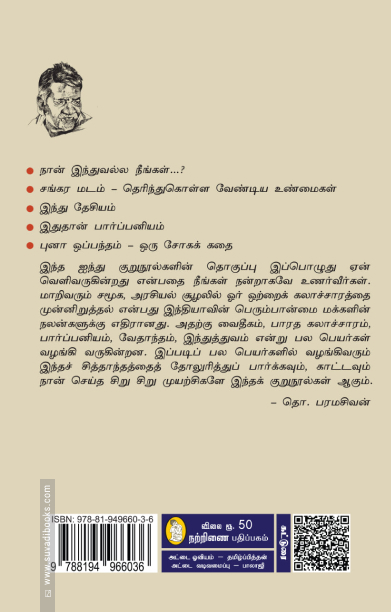 நான் இந்துவல்ல நீங்கள்...?
சங்கர மடம் – தெரிந்துகொள்ள வேண்டிய உண்மைகள்
இந்து தேசியம்
இதுதான் பார்ப்பனியம்
புனா ஒப்பந்தம் – ஒரு சோகக் கதை
இந்த ஐந்து குறுநூல்களின் தொகுப்பு இப்பொழுது ஏன்
வெளிவருகின்றது என்பதை நீங்கள் நன்றாகவே உணர்வீர்கள்.
மாறிவரும் சமூக, அரசியல் சூழலில் ஓர் ஒற்றைக் கலாச்சாரத்தை
முன்னிறுத்தல் என்பது இந்தியாவின் பெரும்பான்மை மக்களின்
நலன்களுக்கு எதிரானது. அதற்கு வைதீகம், பாரத கலாச்சாரம்,
பார்ப்பனியம், வேதாந்தம், இந்துத்துவம் என்று பல பெயர்கள்
வழங்கி வருகின்றன. இப்படிப் பல பெயர்களில் வழங்கிவரும்
இந்தச் சித்தாந்தத்தைத் தோலுரித்துப் பார்க்கவும், காட்டவும்
நான் செய்த சிறு சிறு முயற்சிகளே இந்தக் குறுநூல்கள் ஆகும்.
– தொ. பரமசிவன்
www.suvadibooks.com
ISBN: 978-81-949660-3-6
9 788194 966036
விலை ரூ. 50
நற்றிணை பதிப்பகம்
அட்டை ஓவியம் – தமிழ்ப்பித்தன்
அட்டை வடிவமைப்பு – பாலாஜி